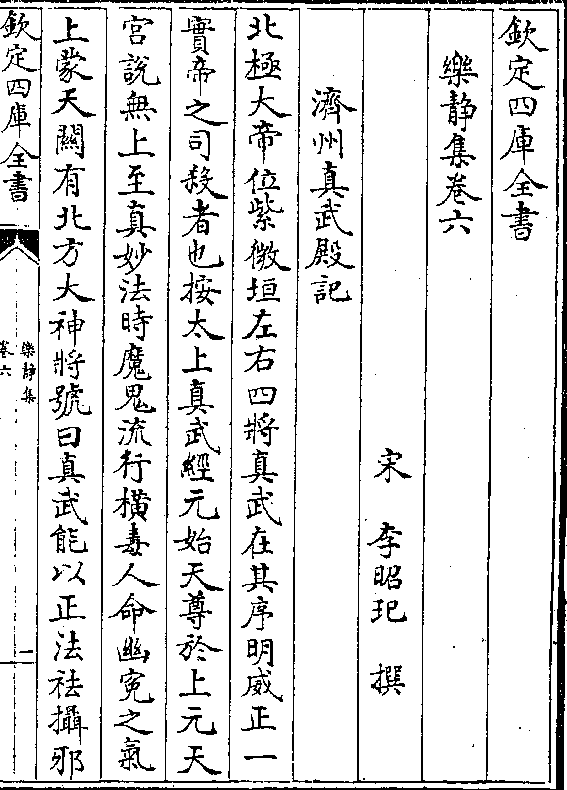 欽定四庫全書
樂静集卷六
宋 李昭玘 撰
濟州真武殿記
北極大帝位紫微垣左右四將真武在其序明威正一
實帝之司殺者也按太上真武經元始天尊於上元天
宫説無上至真妙法時魔鬼流行横毒人命幽寃之氣
上蒙天闗有北方大神將號曰真武能以正法祛攝邪
欽定四庫全書
樂静集
卷六
一